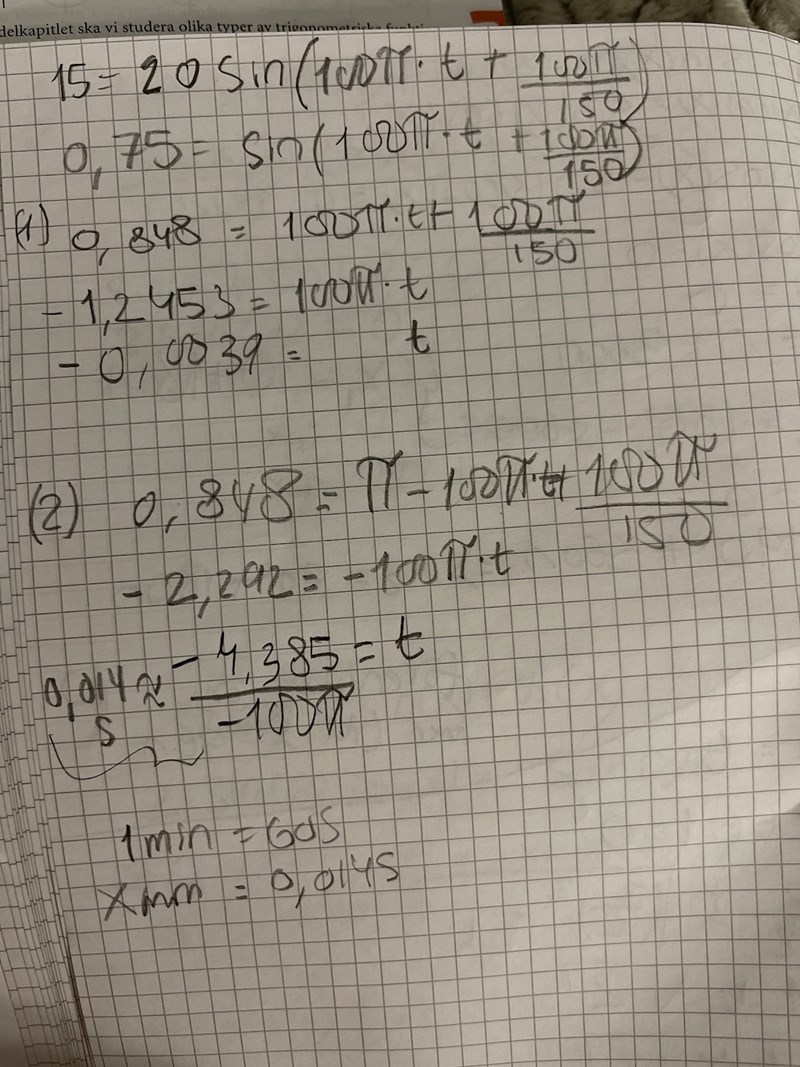 delkapitlet ska vi studera olika typer av trigonometriska
15 = 20 sin(100π · t + 100π/150)
0,75 = sin(100π · t + 100π/150)
(1) 0,848 = 100π · t + 100π/150
-1,2453 = 100π · t
-0,0039 = t
(2) 0,848 = π - 100π · t + 100π/150
-2,292 = -100π · t
0,014 s ≈ -4,385/-100π = t
1 min = 60s
x min = 0,014s